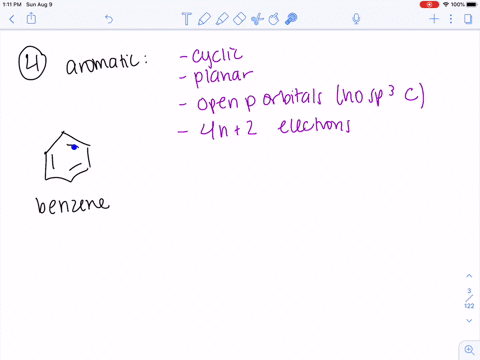 1:11 PM Sun Aug 9
100%
4 aromatic: - cyclic
- planar
- open p orbitals (no sp³ C)
- 4n+2 electrons
benzene
3
/
122